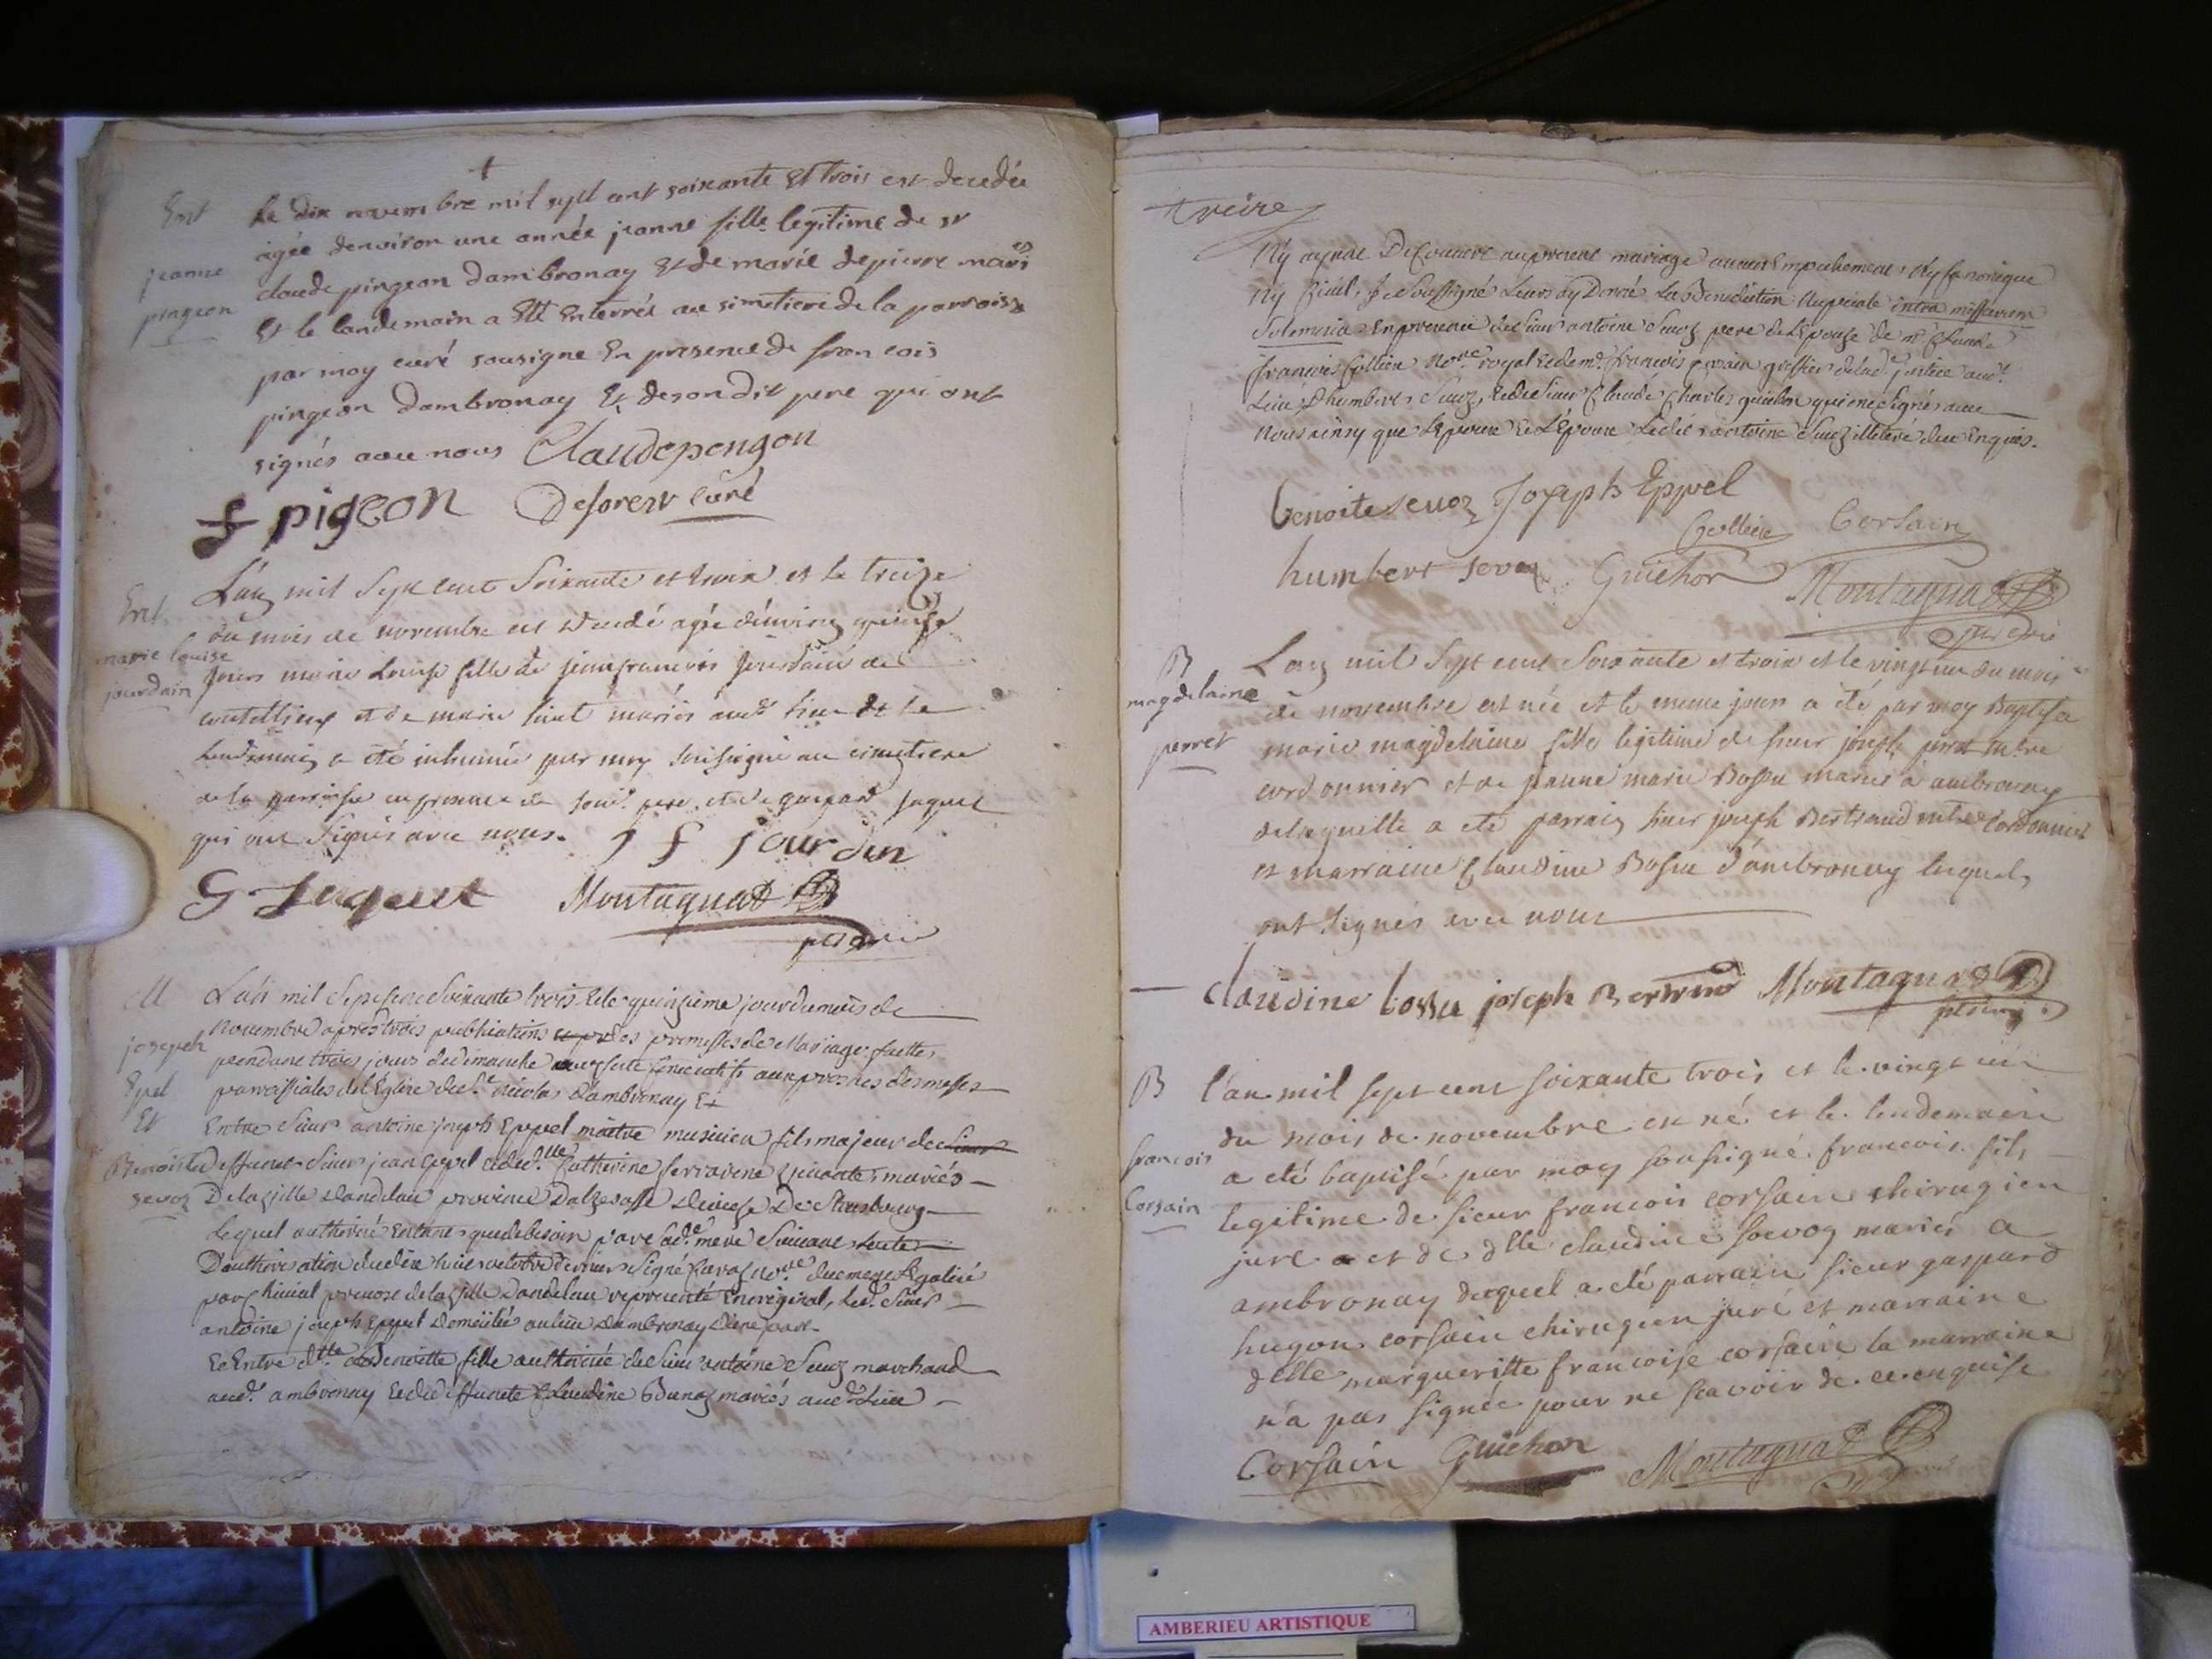 Ent
jeanne
pingeon
Le dix novembre mil sept cent soixante Et trois est decedée
agée denviron une année jeanne fille legitime de sr
claude pingeon dambronay Et de marie depierre mariés
Et le landemain a Eté Enterrée au simetiere de la parroisse
par moy curé sousigne En presence de francois
pingeon dambronay Et de son dit pere qui ont
signés avec nous Claudepengon
f pigeon Deforest curé
Ent
marie louise
jourdain
L'an mil Sept cent Soixante et trois et le treize
du mois de novembre est decedé agée d'environ quinze
jours marie Louise fille de jean francois jourdain de
et de marie mariés aud. lieu et le
lendemain a été inhumée par moy soussigné au cimetiere
de la parroisse en presence de soud. pere et de gaspard jaquet
qui ont signés avec nous. j f jourdin
G Jaquet Montagnat
M
joseph
Epel
Et
Benoiste
sevoz
L'an mil Sept Cent Soixante trois Et le quinzieme jour du mois de
Novembre apres trois publications des promesses de Mariage faittes
pendant trois jours de dimanche consecutifs aux prosnes des messes
parroissiales de l'Eglise de St. nicolas D'ambronay Et
Entre Sieur antoine joseph Eppel maitre musicien fils majeur de
deffunt Sieur jean Eppel et de dlle Catherine mariés
De la ville Dandelau province D'alsasse Diocese De Strasbourg
Lequel authorisé Entant que de besoin par sad. mere Suivant
D'authorisation Signé
de la ville Dandelau representé En original, Led. Sieur
antoine joseph Eppel Domicilié au lieu Dambronay D'une part
Et Entre dlle Benoitte fille authorisée de Sieur antoine Sevoz marchand
aud. ambronay Et de deffunte Claudine Bunoz mariés aud. Lieu
treize
Ny ayant Decouvert au present mariage aucun Empechement Ny Canonique
Ny Civil, Je Soussigné Leur ay Donné La Benediction Nuptiale intra missarum
Solemnia En presence de Sieur antoine Sevoz pere de L'Epouse de mr Claude
francois Collier Nore royal Et de mr francois greffier de lad. justice aud.
Lieu, D'humbert Sevoz, Et de Sieur Claude Charles guichon qui ont Signés avec
Nous ainsy que L'epoux Et L'Epouse Ledit antoine Sevoz illiteré de ce Enquis.
benoite sevoz Joseph Eppel
Collier Corsain
humbert sevoz Guichon Montagnat
B
magdelaine
perret
L'an mil Sept cent Soixante et trois et le vingt un du mois
de novembre est née et le meme jour a été par moy Baptisée
marie magdelaine fille legitime de sieur joseph perret mtre
cordonnier et de jeanne marie Bossu mariés a ambronay
de laquelle a eté parrain sieur joseph Bertrand mtre Cordonnier
et marraine Claudine Bossu d'ambronay lesquels
ont signés avec nous
claudine bossu joseph Bertrand Montagnat
B
francois
Corsain
l'an mil sept cent soixante trois et le vingt un
du mois de novembre est né et le lendemain
a été baptisé par moy soussigné francois fils
legitime de sieur francois corsain chirugien
juré et de dlle claudine sevoz mariés a
ambronay duquel a été parrain sieur gaspard
hugon corsain chirugien juré et marraine
delle margueritte francoise corsain la marraine
n'a pas signée pour ne scavoir de ce enquise
Corsain Guichon Montagnat
AMBERIEU ARTISTIQUE